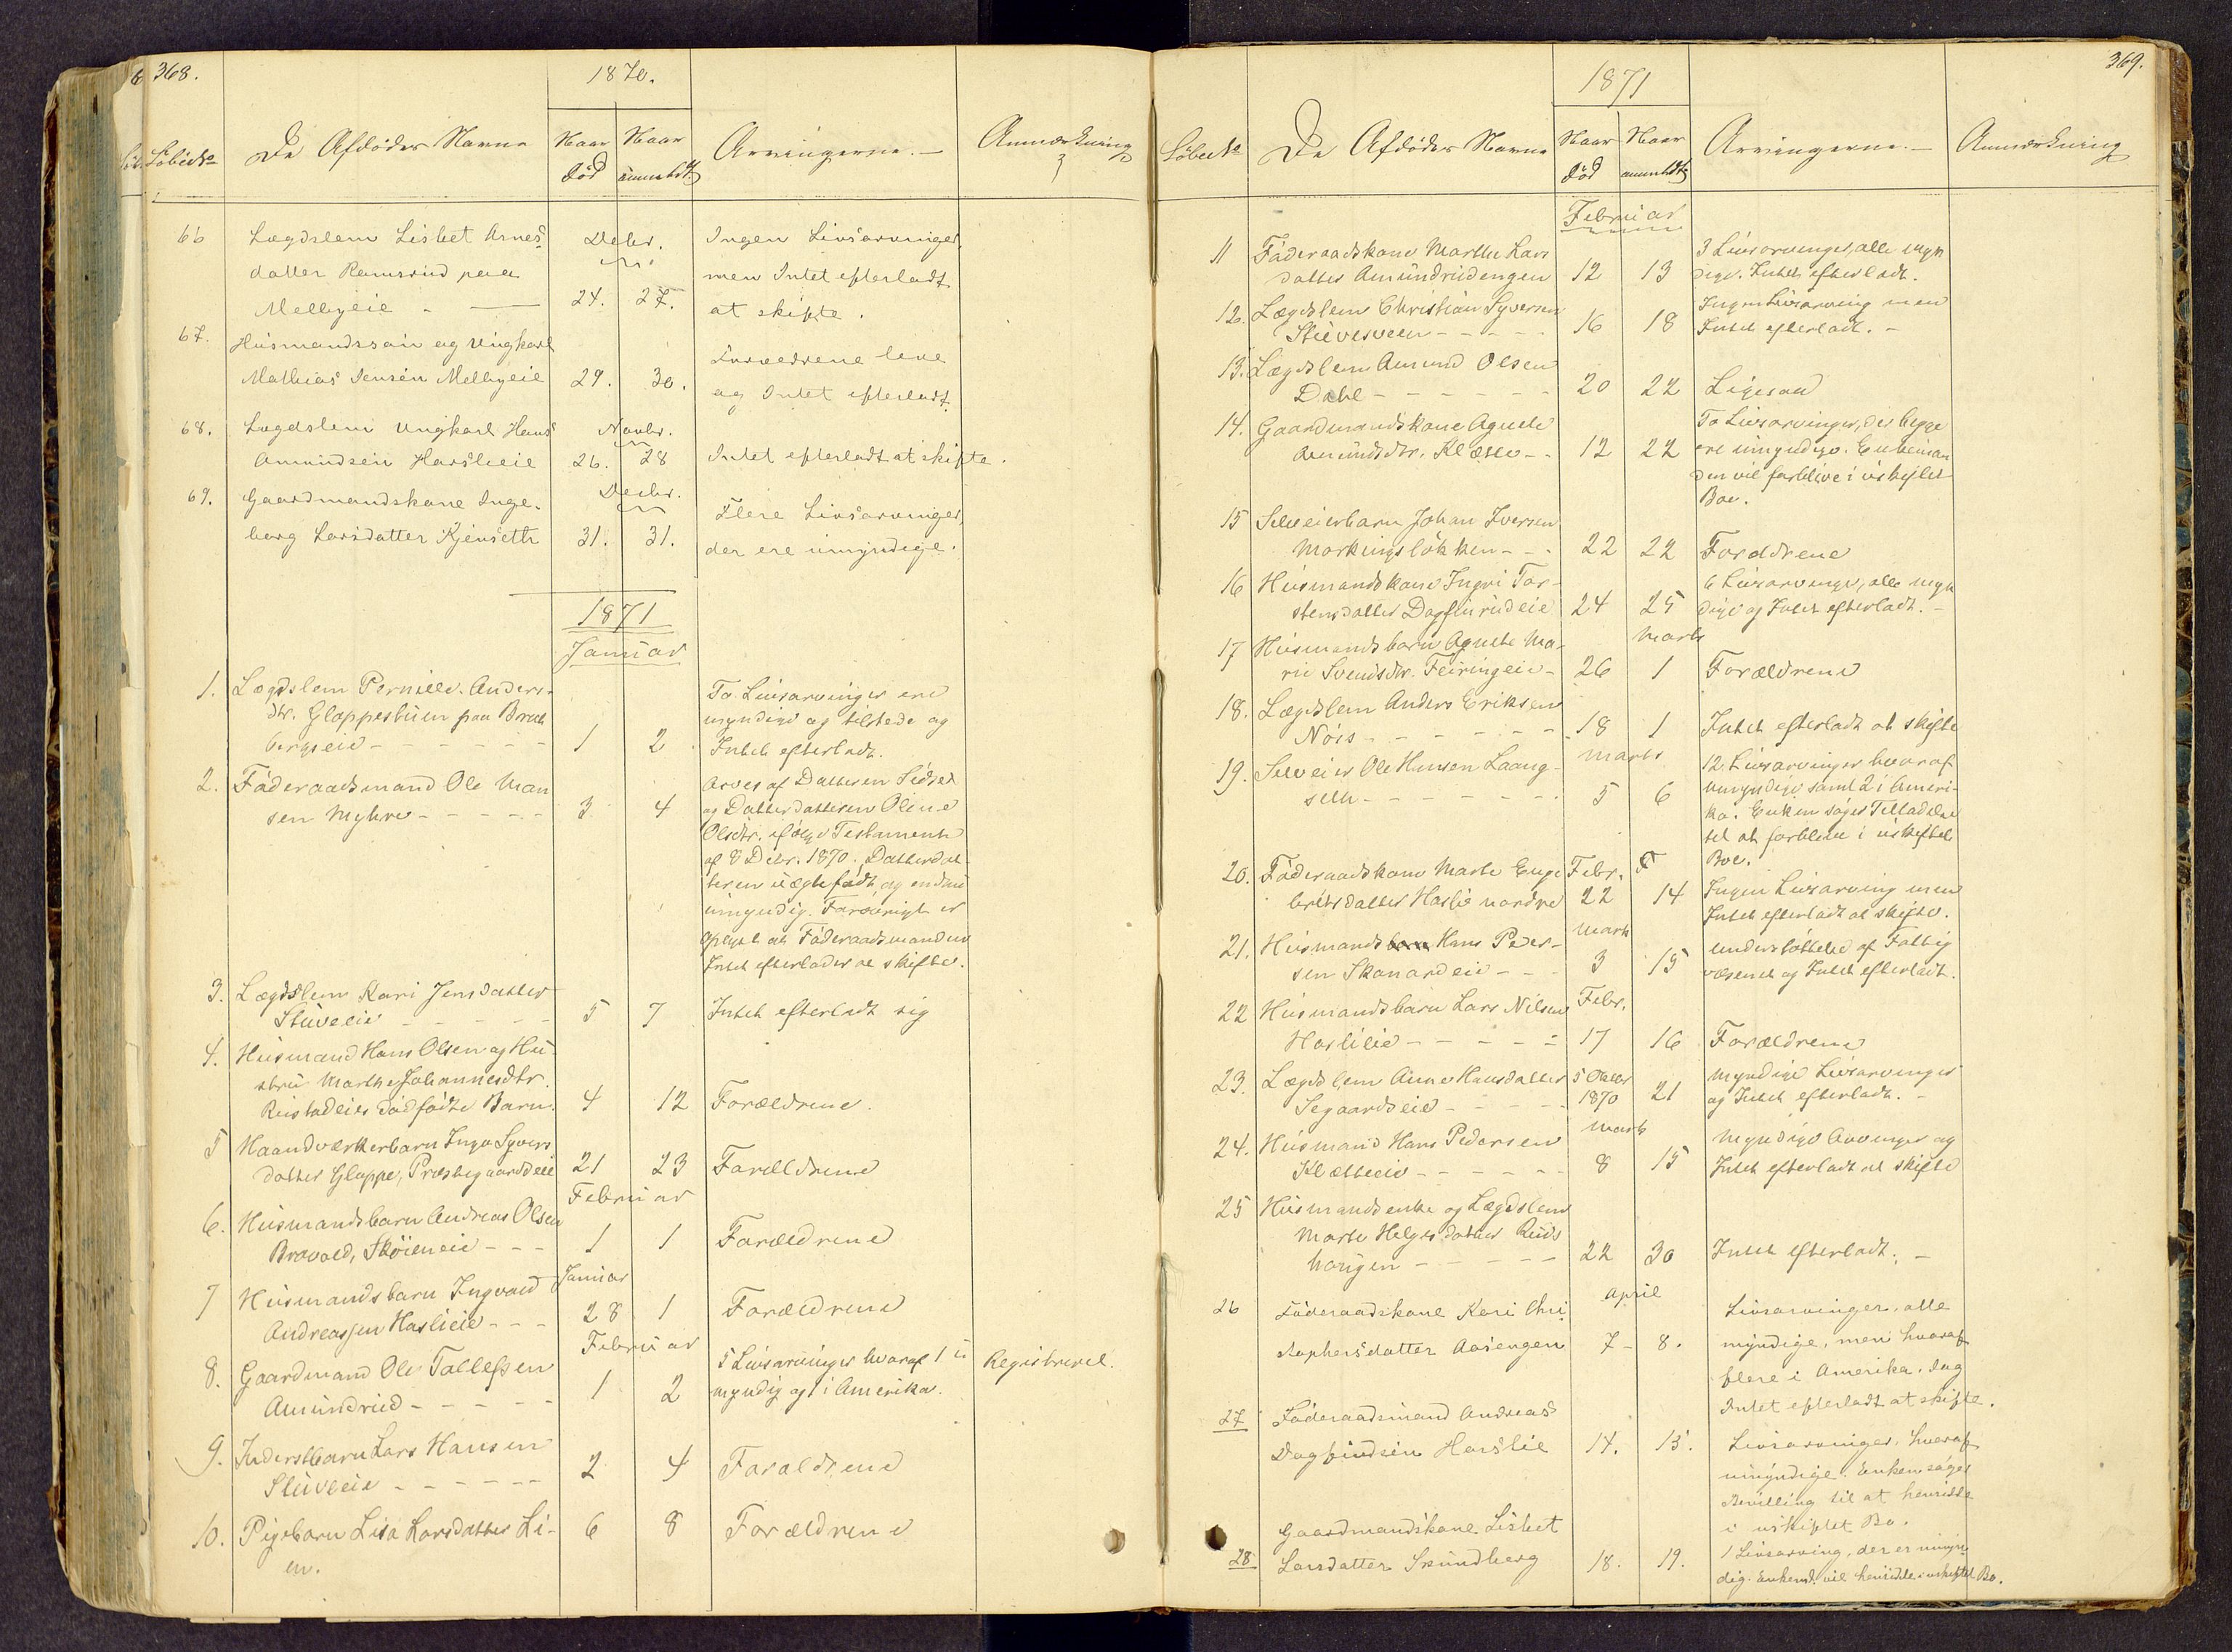 368.
1870.
LöbeNo
De Afdödes Navne
Naar död
Naar anmeldt
Arvingerne. —
Anmærkning
66
Lægdslem Lisbet Arnes-
datter Ramsrud paa
Melbyeie
Decbr.
24. 27.
Ingen Livsarvinger,
men Intet efterladt
at skifte.
67.
Husmandssön og Ungkarl
Mathias Jensen Melbyeie
29. 30.
Forældrene leve
og Intet efterladt.
68.
Lægdslem Ungkarl Hans
Amundsen Haslieie
Novbr.
26. 28
Intet efterladt at skifte.
69.
Gaardmandskone Inge-
borg Larsdatter Kjenseth
Decbr.
31. 31.
Flere Livsarvinger,
der ere umyndige.
1871
Januar
1. Lægdslem Pernille Anders-
dtr. Gloppestuen paa
bergseie
1 2
To Livsarvinger ere
myndige og tilstede og
Intet efterladt.
2. Föderaadsmand Ole Man
sen Myhre
3 4
Arves af Datteren Sidsel
og Datterdatteren Oline
Olsdtr. ifölge Testamente
af 8 Decbr. 1870. Datterdat-
teren uægtefödt og endnu
umyndig. Forövrigt er
oplyst at Föderaadsmanden
Intet efterlader at skifte.
3. Lægdslem Kari Jensdatter
Stuveeie
5 7
Intet efterladt sig
4. Husmand Hans Olsen og Hu-
stru Marthe Johannesdtr.
Rustadeies dödfödte Barn.
4 12
Forældrene.
5 Haandværkerbarn Inga Syvers
datter Gloppe, Præstegaardseie
21 23
Forældrene
Februar
6. Husmandsbarn Andreas Olsen
Bravold, Sköieneie
1 1
Forældrene
Januar
7 Husmandsbarn Ingvald
Andreassen Haslieie
28 1
Forældrene
Februar
8. Gaardmand Ole Tollefsen
Amundrud
1 2
5 Livsarvinger hvoraf 1 u
myndig og 1 i Amerika.
Registreret.
9. Inderstbarn Lars Hansen
Stuveeie
2 4
Forældrene
10. Pigebarn Lisa Larsdatter Li-
en.
6 8
Forældrene
369.
1871
LöbeNo
De Afdödes Navne
Naar död
Naar anmeldt
Arvingerne. —
Anmærkning
Februar
11 Föderaadskone Marthe Lars
datter Amundrudengen
12 13
3 Livsarvinger, alle myn
dige. Intet efterladt.
12. Lægdslem Christian Syversen
Stuvesveen
16 18
Ingen Livsarving men
Intet efterladt. —
13. Lægdslem Amund Olsen
Dahl
20 22
Ligesaa
14. Gaardmandskone Agnethe
Amundsdtr. Klætte
12 22
To Livsarvinger, der begge
ere umyndige. Enkeman
den vil forblive i uskiftet
Boe.
15 Selveierbarn Johan Iversen
Morkingslökken
22 22
Forældrene
16 Husmandskone Ingri Tor-
stensdatter Dagfinrudeie
24 25
6 Livsarvinger, alle myn
dige og Intet efterladt. —
17 Husmandsbarn Agnethe Ma-
rie Svendsdtr. Feiringeie
Marts
26 1
Forældrene
18. Lægdslem Anders Eriksen
Nöis
18 1
Intet efterladt at skifte
19. Selveier Ole Hansen Laang-
seth
Marts
5 6
12 Livsarvinger hvoraf
umyndige samt 2 i Ameri-
ka. Enken söger Tilladelse
til at forblive i uskiftet
Boe.
20. Föderaadskone Marte Enge
bretsdatter Haslie nordre
Febr.
22 14
Ingen Livsarving men
Intet efterladt at skifte.
21. Husmands Hans Peder-
sen Skonardeie
Marts
3 15
understöttedes af Fattig
væsenet og Intet efterladt.
22 Husmandsbarn Lars Nilsen
Haslieie
Febr.
17 16
Forældrene
23. Lægdslem Anne Hansdatter
Segaardseie
5 Octbr
1870 21
Myndige Livsarvinger
og Intet efterladt. —
24. Husmand Hans Pedersen
Klætteeie
Marts
8 15
Myndige Arvinger og
Intet efterladt at skifte
25 Husmandsenke og Lægdslem
Marte Helgesdatter Ruds
haugen
22 30
Intet efterladt. —
April
26 Föderaadskone Kari Chri-
stophersdatter Aasengen
7 8.
Livsarvinger, alle
myndige, men hvoraf
flere i Amerika. Dog
Intet efterladt at skifte.
27 Föderaadsmand Andreas
Dagfindsen Haslie
14. 15.
Livsarvinger, hvoraf
umyndige. Enken söger
Bevilling til at hensidde
i uskiftet Bo.
28
Gaardmandskone Lisbet
Larsdatter Sandberg
18. 19.
1 Livsarving, der er umyn
dig. Enkemd. vil hensidde i uskiftet Bo.